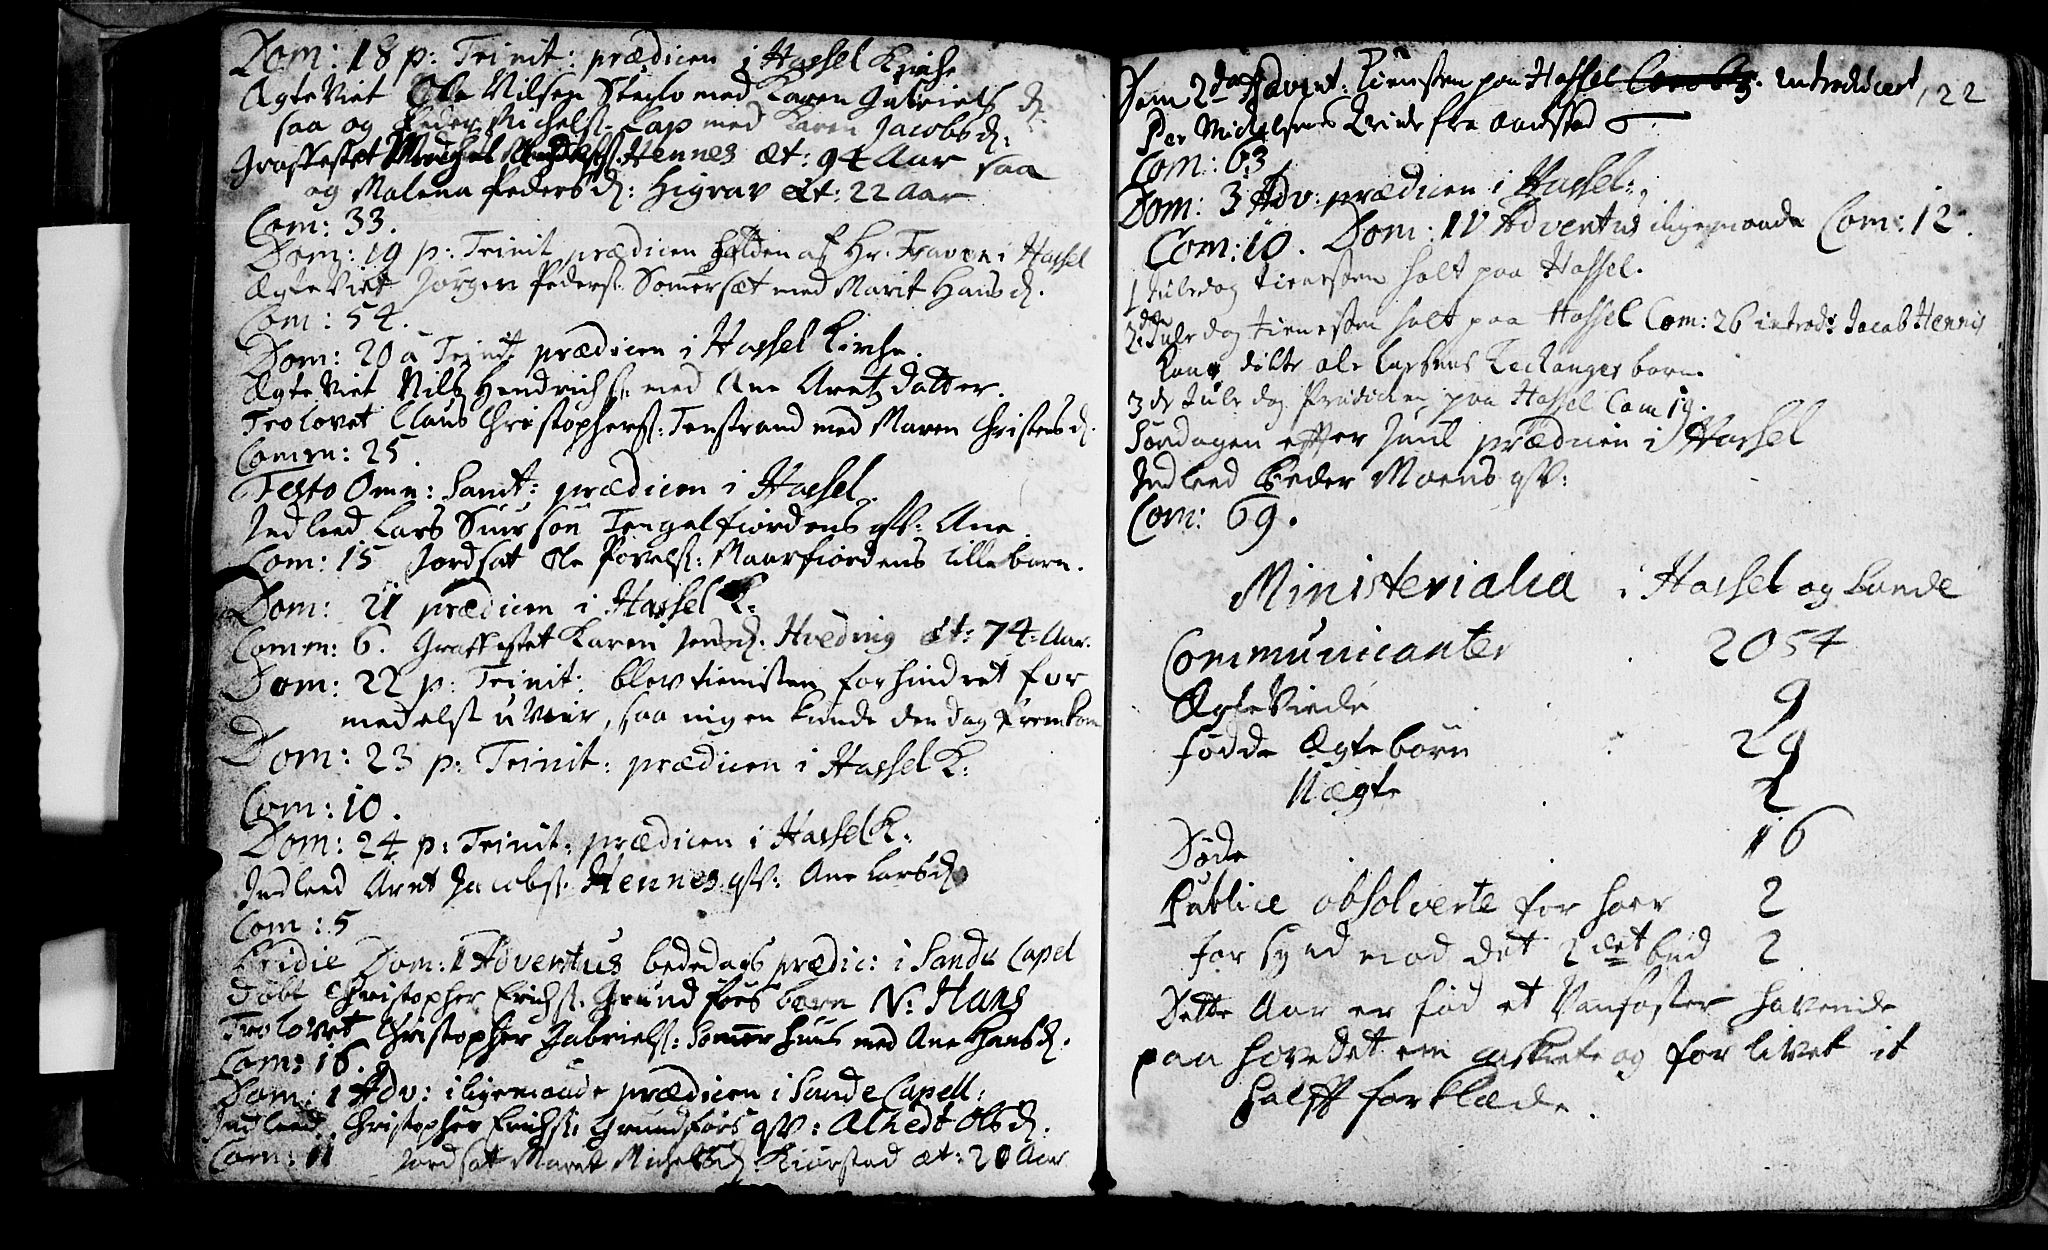 Dom: 18 p: Trinit: prædicen i Hassel Kirche
ÆgteViet Ole Nilsen Stechlo med Karen Gabriels d.
saa og Peder Michels: Lap med Karen Jacobsd:
Graffestet Hennes æt: 94 Aar saa
og Malena Pedersd: Higrav æt: 22 Aar
Com: 33.
Dom: 19 p: Trinit prædicen holden af Hr. i Hassel
ÆgteViet Jørgen Peders: Somersæt med Marit Hansd.
Com: 54.
Dom: 20 a Trinit prædicen i Hassel Kirche.
ÆgteViet Nils Hendrichs: med Ane Arentz datter.
Trolovet Claus Christophers: Tenstrand med Maren Christensd.
Comm: 25.
Festo Omn: Sanct: prædicen i Hassel.
Indleed Lars Siursøn Tengelfiordens qv: Ane.
Com: 15 Jordsat Ole Povels: Maarfiordens lille barn.
Dom: 21 prædicen i Hassel K:
Comm: 6. Graffestet Karen Jensd. Hveding æt: 74 Aar.
Dom: 22 p: Trinit: blev tienisten forhindret for
medelst uveir, saa ingen kunde den dag fremkom
Dom: 23 p: Trinit: prædicen i Hassel K:
Com: 10.
Dom: 24 p: Trinit: prædicen i Hassel K:
Indleed Arnt Jacobs: Hennes qv: Ane Larsd
Com: 5
Pridie Dom: 1 Adventus bededags prædic: i Sande Capel
Døbt Christopher Erichs: Grundfors barn N: Hans
Trolovet Christopher Gabriels: Somerhuus med Ane Hansd.
Com: 16.
Dom: 1 Adv: iligemaade prædicen i Sande Capell:
Indleed Christopher Erichs: Grundfors qv: Alhedt Olsd.
Com: 11 Jordsat Marit Michelsd: Kiørstad æt: 20 Aar
Dom 2da Advent: Tienesten paa Hassel introducert 22
Per Michelsens Qvinde fra Aadstad
Com: 63
Dom: 3 Adv: prædicen i Hassel:
Com: 10. Dom: IV Adventus iligemaade Com: 12.
1 Juledag tienesten holt paa Hassel.
2den Juledag tienesten holt paa Hassel Com: 26 introd: Jacob Hennis
Kone, døbte ole Larsens barn.
3de Juledag Prædicken paa Hassel Com 19.
Søndagen efter Juul prædicen i Hassel
Indleed Peder Moens qv:
Com: 69.
Ministerialia i Hassel og Sande
Communicanter 2054
ÆgteViede 9
fødde Ægtebørn 29
Uægte 2
Døde 16
Publice absolverte for hoer 2
for synd mod det 2det bud 2
Dette Aar er fød et Vanfoster havende
paa hovedet en og for livet it
halft forklæde.